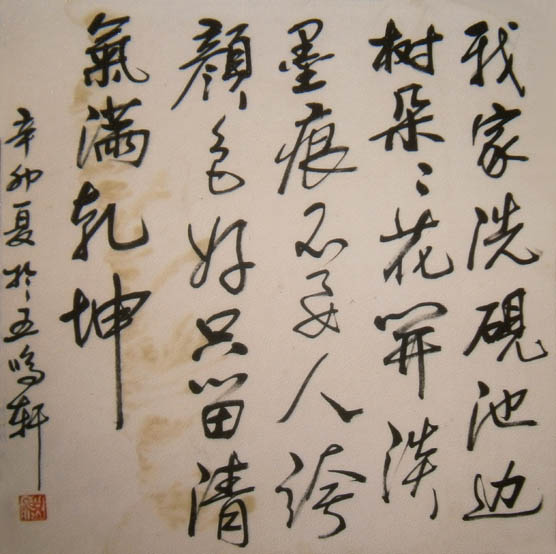 我家洗硯池边
树朵〻花開淡
墨痕不要人誇
顏色好只留清
氣满乾坤
辛卯夏於五鳴軒